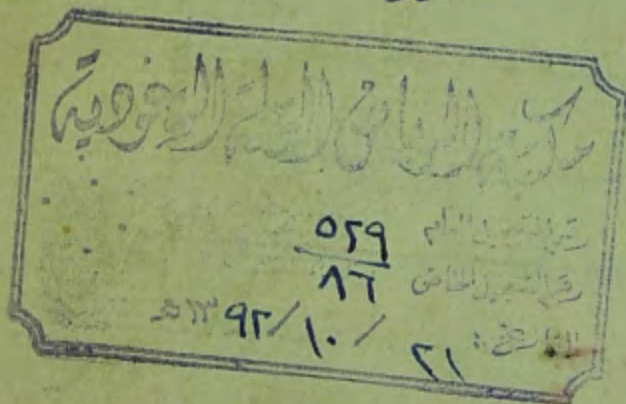 مكتبة الرياض العامة السعودية
رقم التسجيل العام ٥٢٩
رقم التسجيل الخاص ٨٦
التاريخ: ٢١ / ١٠ / ١٣٩٢ هـ